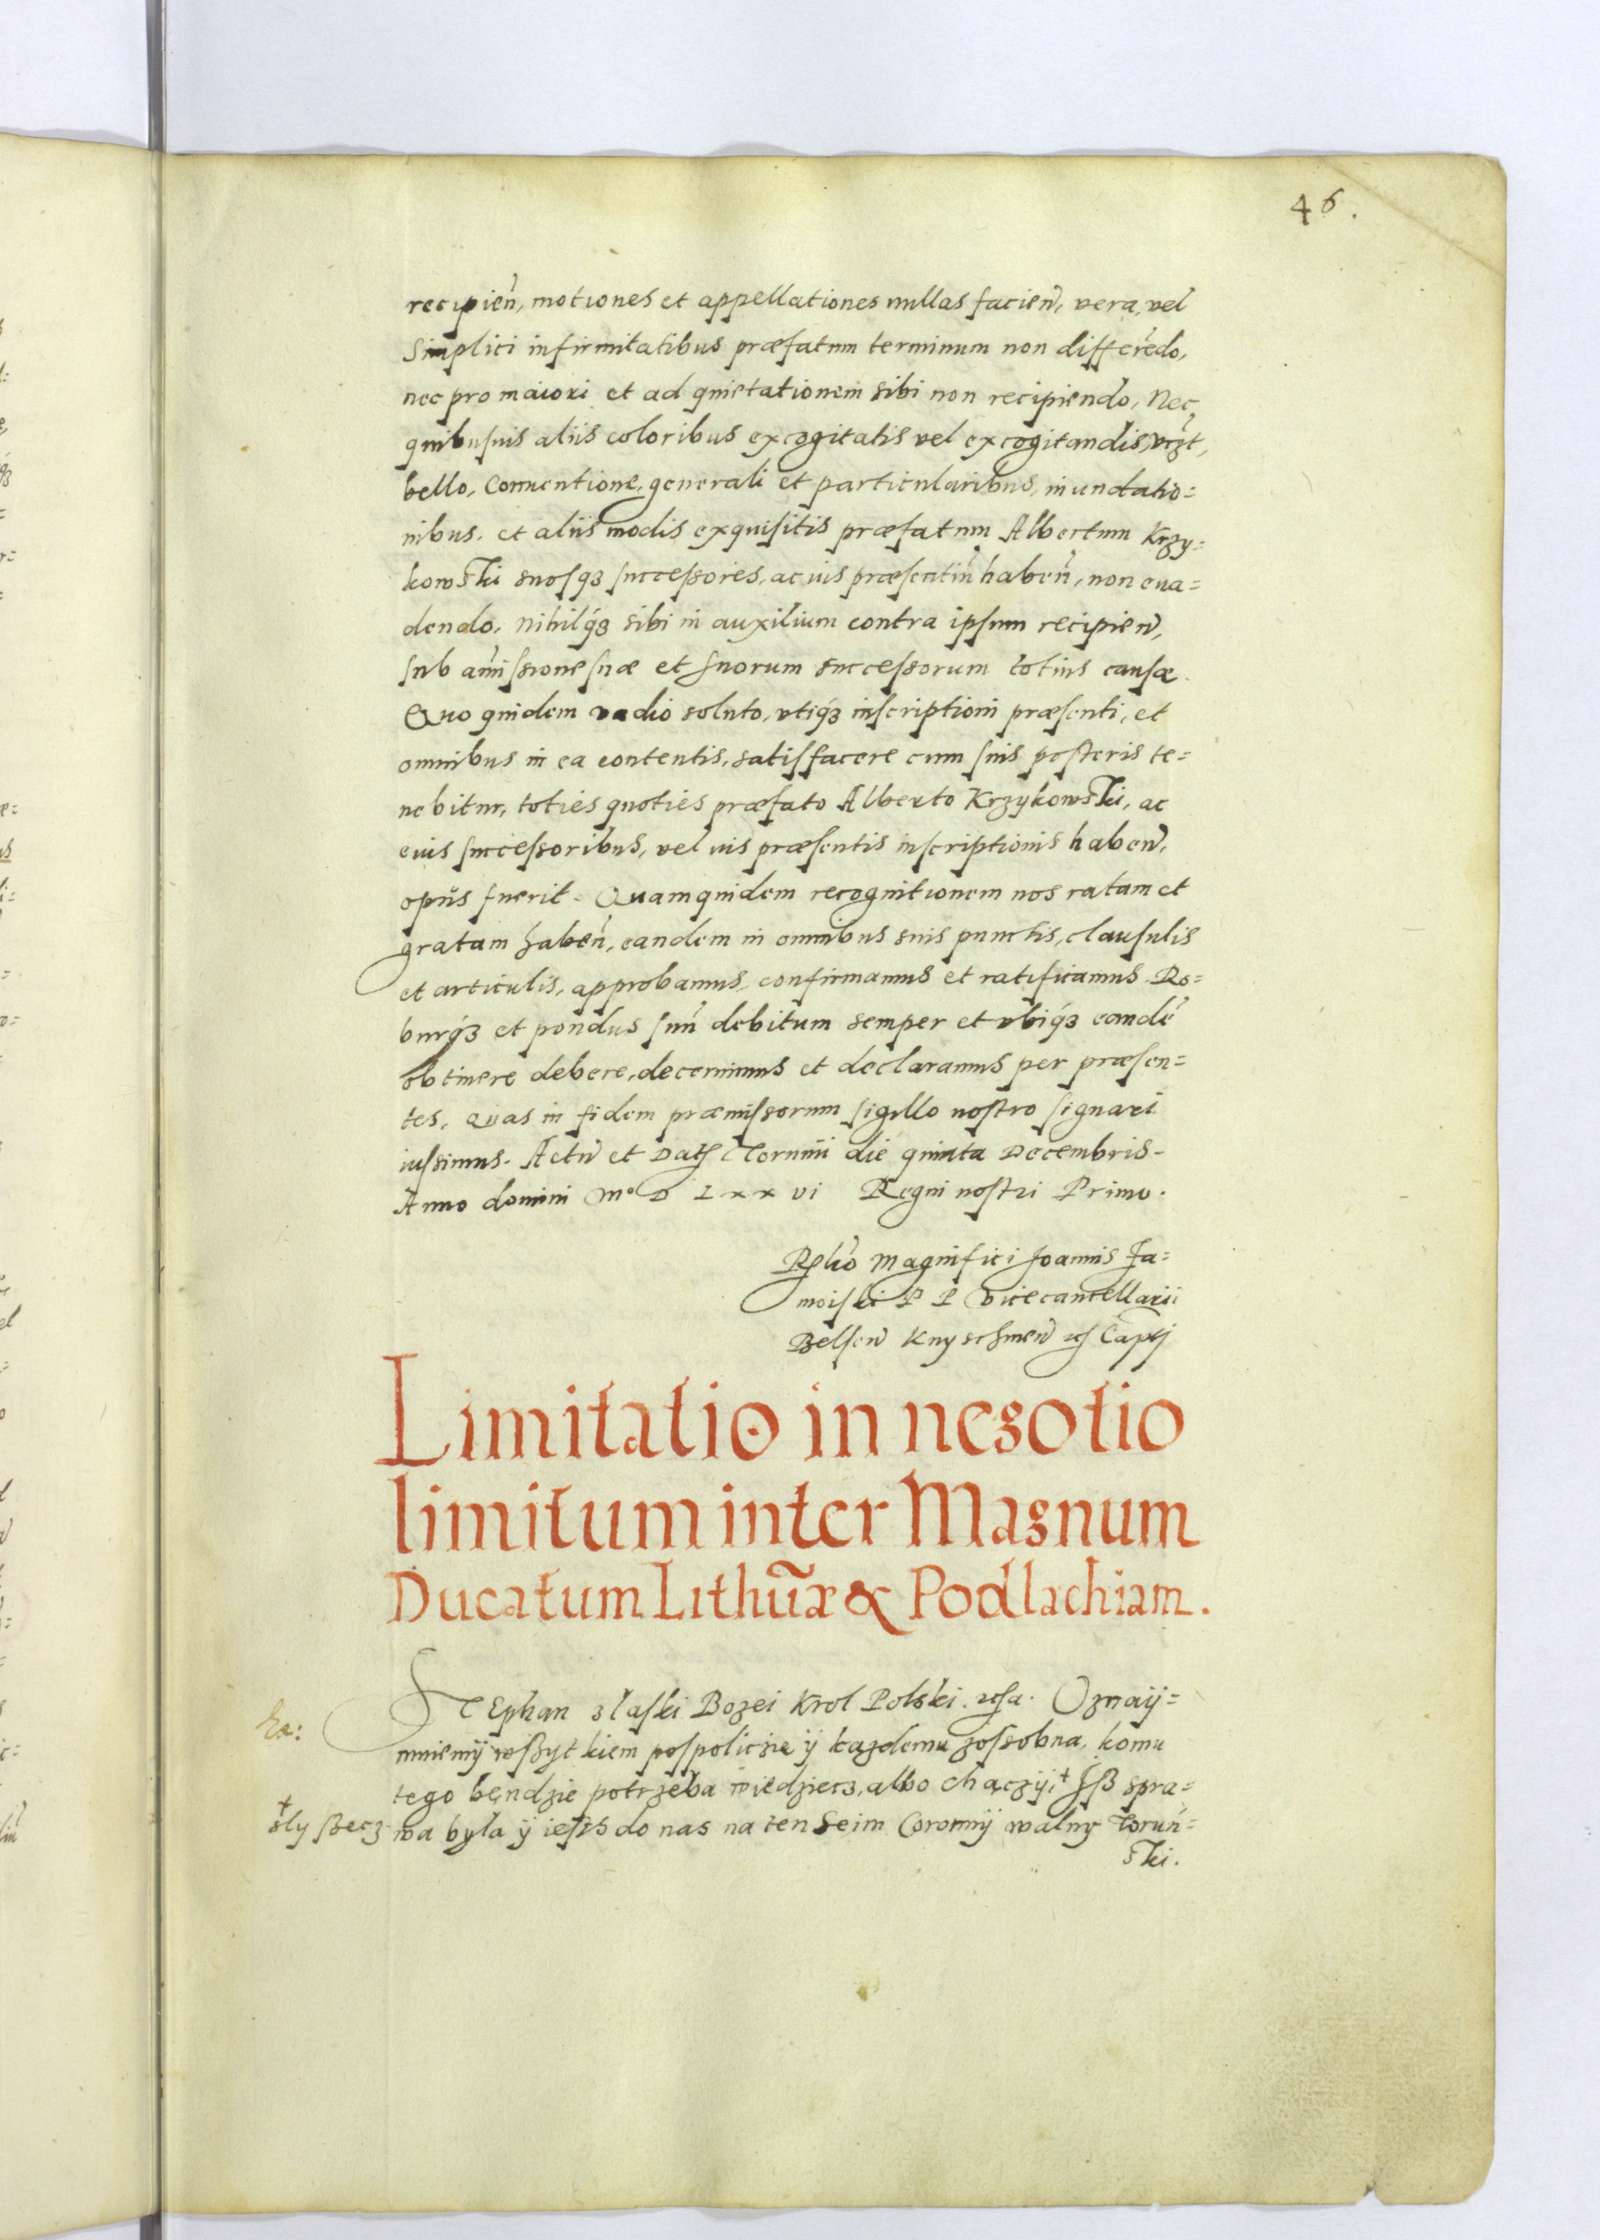 46.
recipien̄, motiones et appellationes nullas facien̄, vera, vel
simplici infirmitatibus præfatum terminum non differēdo,
nec pro maiori et ad quietationem sibi non recipiendo, Nec
quibusuis aliis coloribus excogitatis vel excogitandis, vczt,
bello, Conuentione, generali et particularibus, inundatio=
nibus, et aliis modis exquisitis præfatum Albertum Krzy=
kowski suosq3 successores, ac ius præsentiū haben̄, non eua=
dendo, nihilq3 sibi in auxilium contra ipsum recipien̄,
sub amissione suæ et suorum successorum totius causæ.
Quo quidem vadio soluto, vtiq3 inscriptioni præsenti, et
omnibus in ea contentis, satisfacere cum suis posteris te=
nebitur, toties quoties præfato Alberto Krzykowski, ac
eius successoribus, vel ius præsentis inscriptionis haben̄,
opus fuerit. Quamquidem recognitionem nos ratam et
gratam haben̄, eandem in omnibus suis punctis, clausulis
et articulis, approbamus, confirmamus et ratificamus. Ro=
burq3 et pondus suū debitum semper et vbiq3 eandē
obtinere debere, decernimus et declaramus per præsen=
tes, quas in fidem præmissorum sigillo nostro signari
iussimus. Actū et Datȝ Torunii die quinta Decembris.
Anno domini M° D Lxxvi Regni nostri Primo.
Rel̄io Magnifici Joannis Za=
moiski R P Vicecancellarii
Belsen̄ Knyschinen̄ etc Capt̄j
Limitatio in negotio
limitum inter Magnum
Ducatum Lithūæ & Podlachiam.
STEphan z laski Bozei Krol Polski etc̄a. Oznaÿ=
Ex:
mniemÿ wszytkiem pospoliczie ÿ kazdemu zossobna, komu
tego bęndzie potrzeba wiedziecz, albo chączÿi † Jsz spra=
† slyszecz
wa była ÿ iests do nas na ten Seim Coronnÿ walny Toruń=
ski.